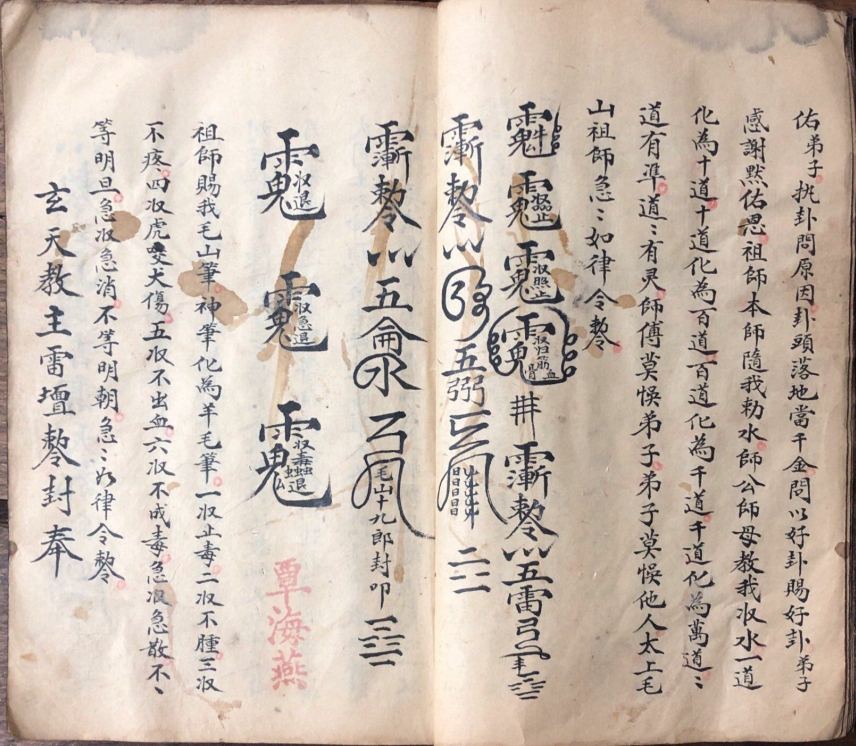 佑弟子挑卦問原因卦頭落地當千金問以好卦賜好卦弟子
感謝黙佑恩祖師本師隨我勅水師公師母教我収水一道
化為十道十道化為百道百道化為千道千道化為萬道〻
道有準道〻有灵師傅莫悞弟子弟子莫悞他人太上毛
山祖師急〻如律令
収止
収照止
収归筋血骨
五雷
五
五
水
毛山十九郎封叩
収退
収急退
収毒蟲退
覃海燕
祖師賜我毛山筆神筆化為羊毛筆一収止毒二収不腫三収
不疼四収虎咬犬傷五収不出血六収不成毒急収急散不〻
等明旦急収急消不等明朝急〻如律令
玄天教主雷壇封奉